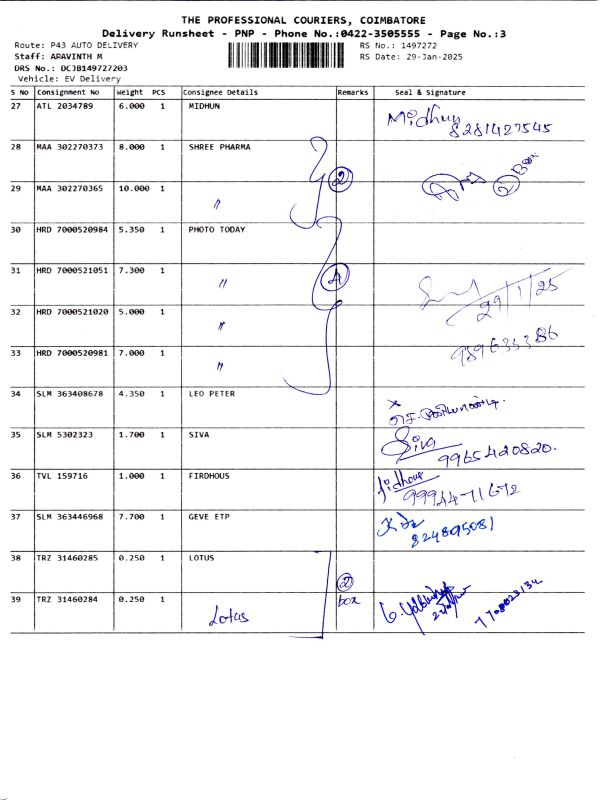 THE PROFESSIONAL COURIERS, COIMBATORE
Delivery Runsheet - PNP - Phone No.:0422-3505555 - Page No.:3
Route: P43 AUTO DELIVERY RS No.: 1497272
Staff: ARAVINTH M RS Date: 29-Jan-2025
DRS No.: DCJB149727203
Vehicle: EV Delivery
S No Consignment No Weight PCS Consignee Details Remarks Seal & Signature
27 ATL 2034789 6.000 1 MIDHUN Midhun
8281427545
28 MAA 302270373 8.000 1 SHREE PHARMA
2
29 MAA 302270365 10.000 1
〃
30 HRD 7000520984 5.350 1 PHOTO TODAY
31 HRD 7000521051 7.300 1 〃 4
29/1/25
32 HRD 7000521020 5.000 1
〃
33 HRD 7000520981 7.000 1
〃
9896353386
34 SLM 363408678 4.350 1 LEO PETER
35 SLM 5302323 1.700 1 SIVA Siva
9965420820.
36 TVL 159716 1.000 1 FIRDHOUS
99944-71672
37 SLM 363446968 7.700 1 GEVE ETP
824895081
38 TRZ 31460285 0.250 1 LOTUS
2
39 TRZ 31460284 0.250 1 box
Lotus